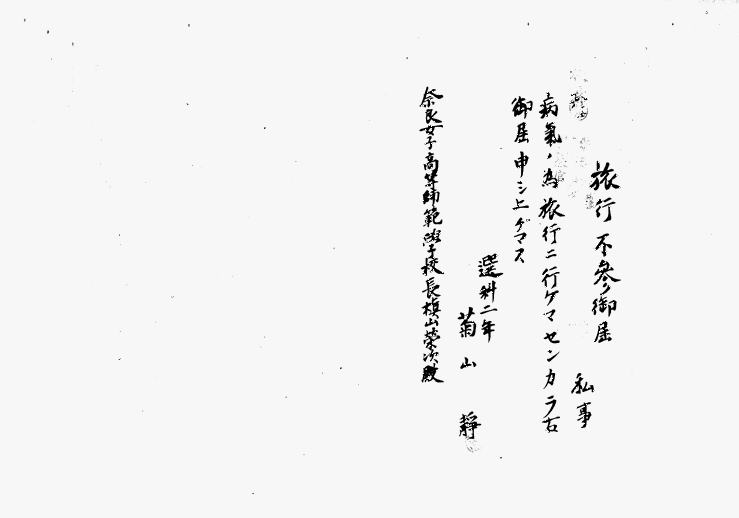 旅行不參御屆
私事
病氣ノ為旅行ニ行ケマセンカラ右
御屆申シ上ゲマス
選科二年
菊山 靜
奈良女子高等師範學校長槇山榮次殿